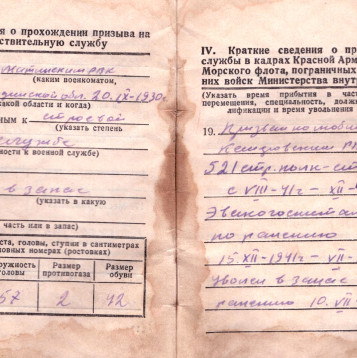 я о прохождении призыва на
ствительную службу
(каким военкоматом,
обл. 20. IX-1930г.
какой области и когда)
ным к строевой
(указать степень
службе
ности к военной службе)
в запас
(указать в какую
часть или в запас)
ста, головы, ступни в сантиметрах
овных номерах (ростовках)
ружность головы Размер противогаза Размер обуви
57 2 42
IV. Краткие сведения о про
службы в кадрах Красной Арм
Морского флота, пограничных
них войск Министерства внут
(Указать время прибытия в часть
перемещения, специальность, долж
лификации и время увольнения
19. Призван по моби
РВ
521 стр. полк-ст
с VIII-41г – XII-
Эвакогоспит
по ранению
15 XII-1941г –
Уволен в запас
ранению 10. VII